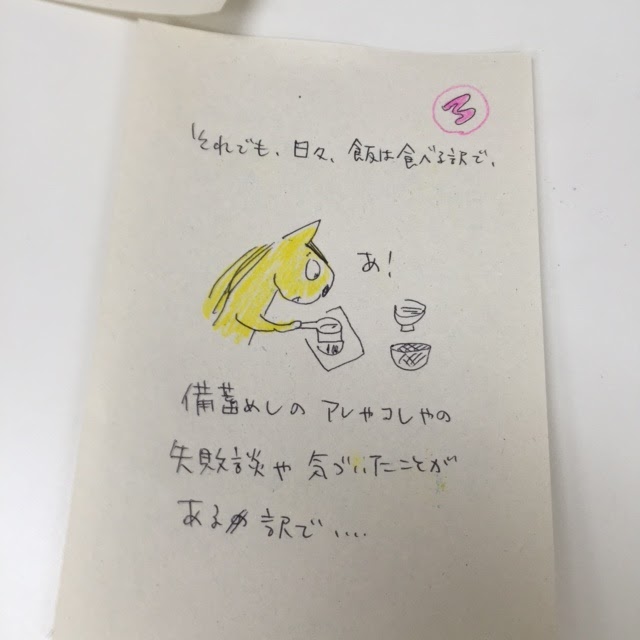 3
それでも、日々、飯は食べる訳で、
あ!
備蓄めしの アレやコレやの
失敗談や 気づいたことが
ある訳で、、、